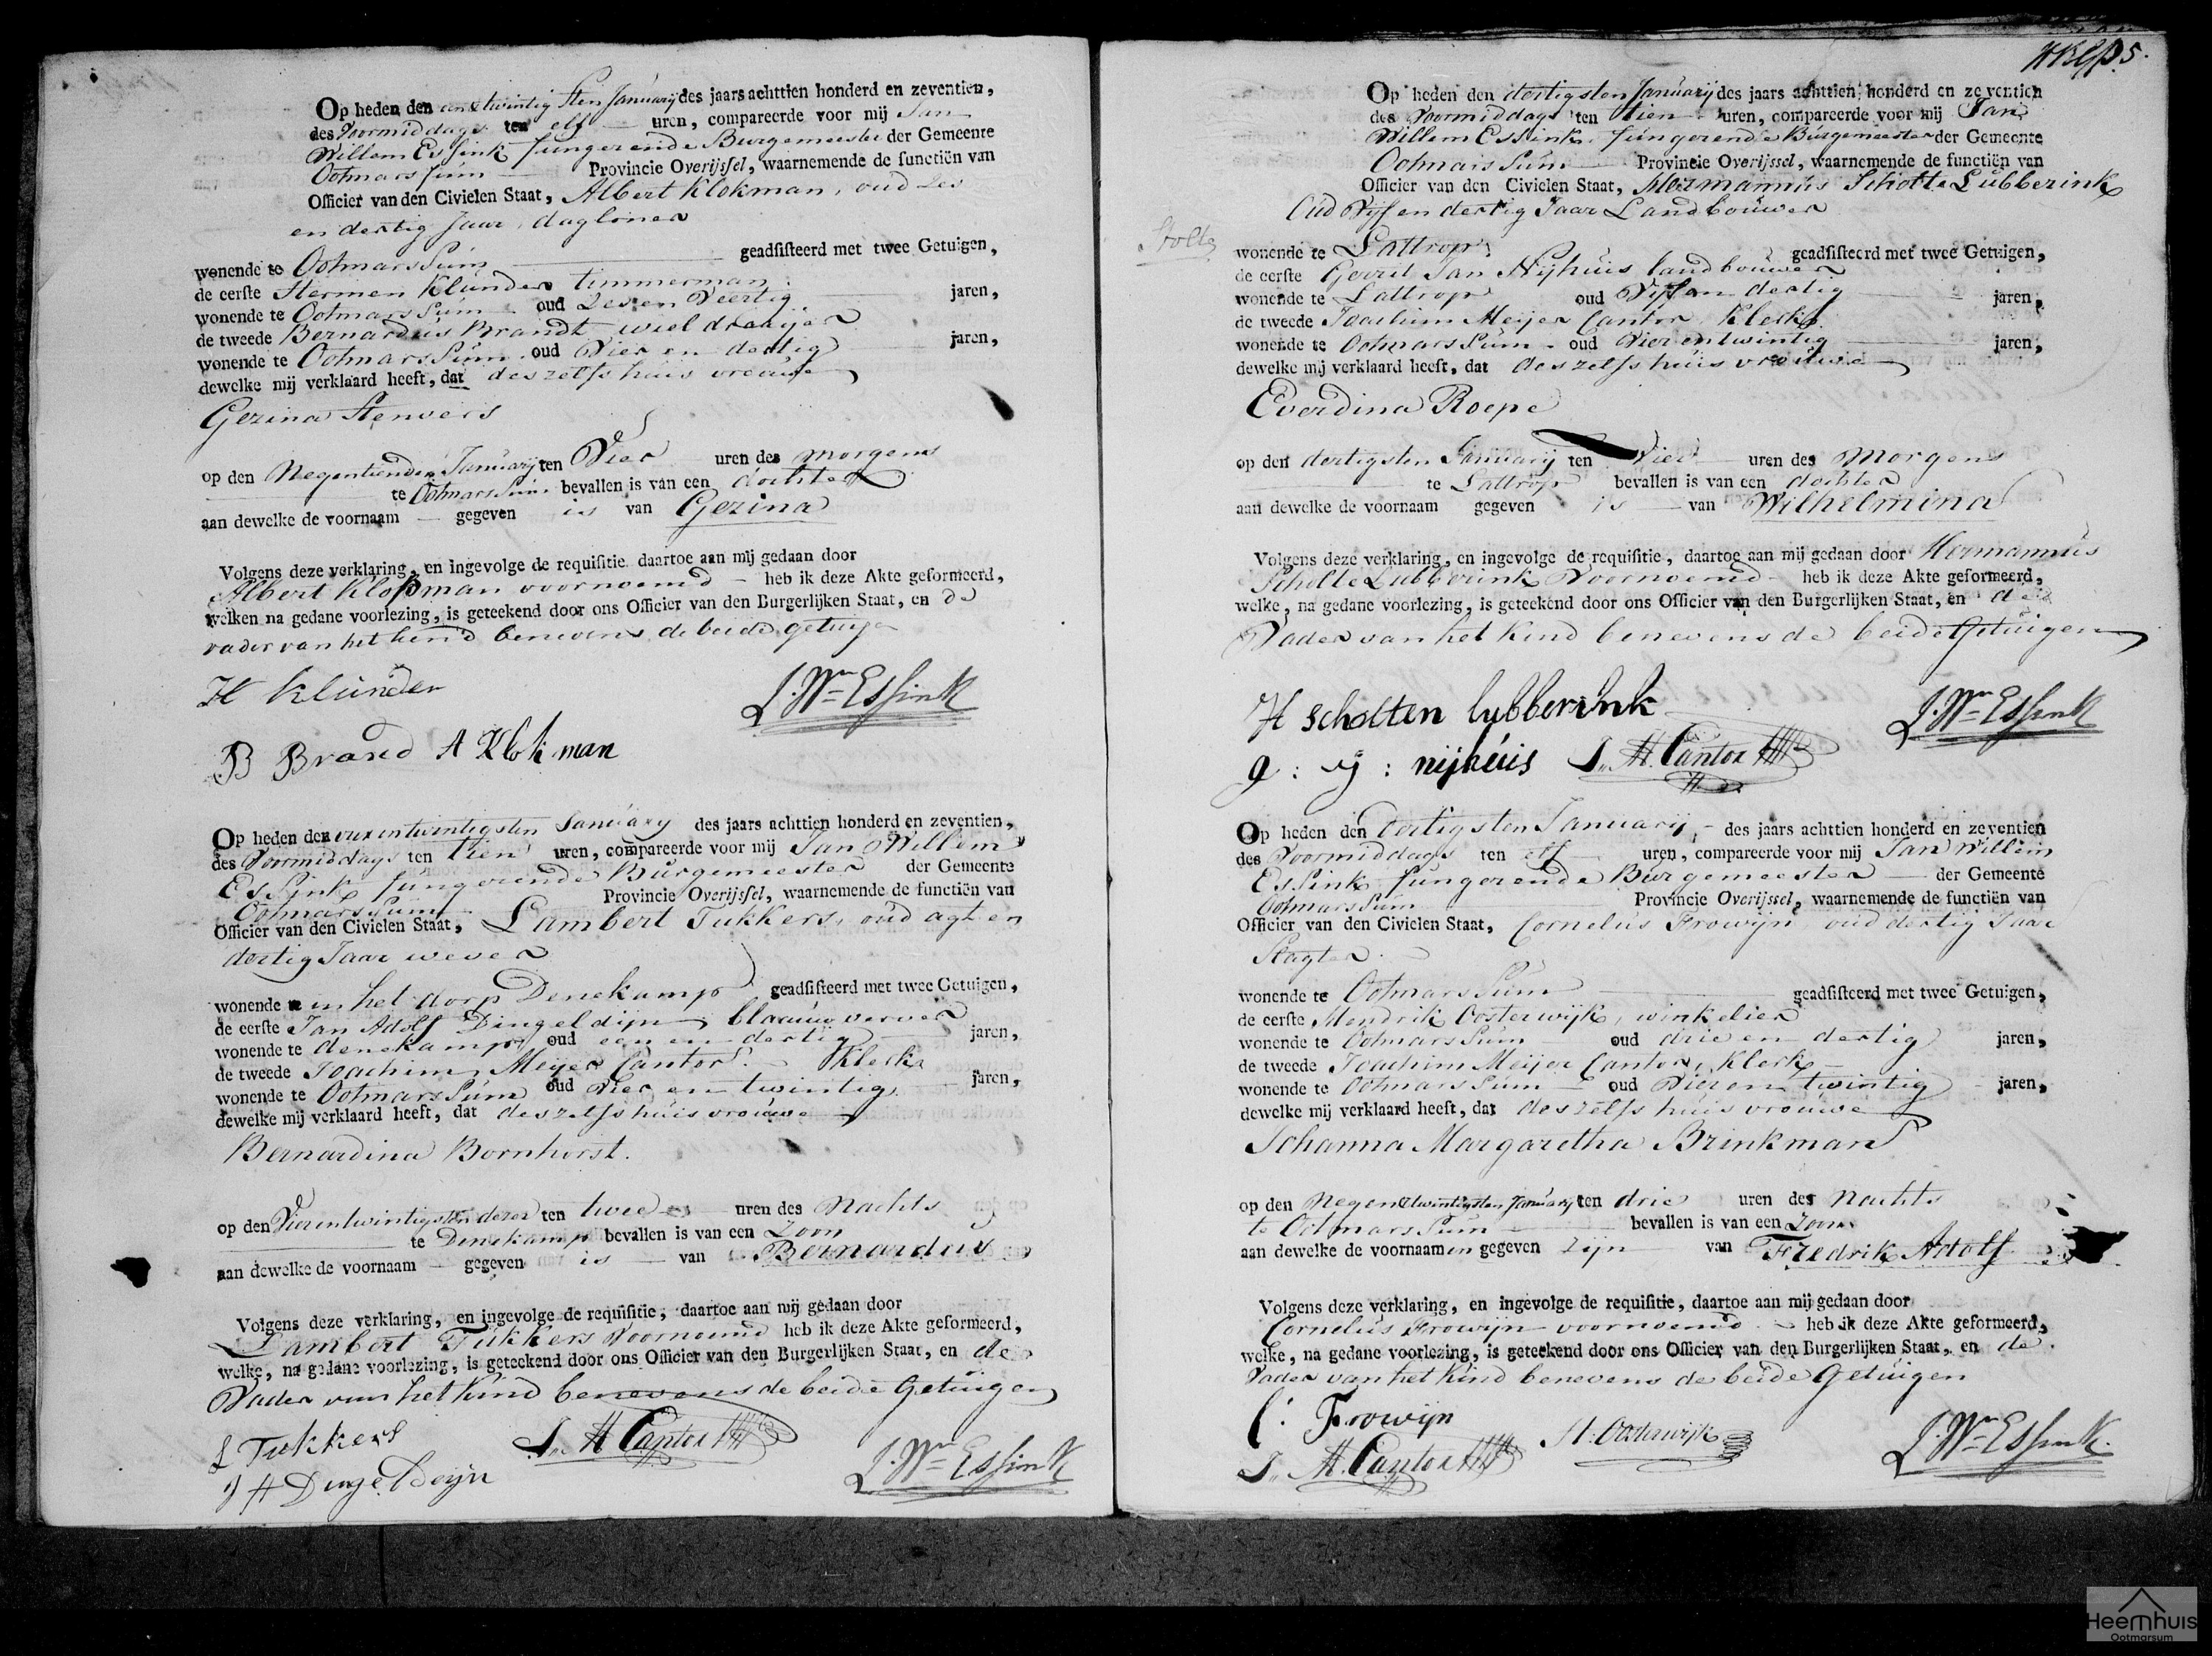 Op heden den een & twintig sten January des jaars achttien honderd en zeventien,
des Voormiddags ten elf uren, compareerde voor mij Jan
Willem Essink fungerende Burgemeester der Gemeente
Ootmarssum Provincie Overijssel, waarnemende de functiën van
Officier van den Civielen Staat, Albert Klokman, oud Zes
en dertig Jaar, dagloner
wonende te Ootmarssum geadsisteerd met twee Getuigen,
de eerste Hermen Klunder timmerman
wonende te Ootmarssum oud Zes en Veertig jaren,
de tweede Bernardus Brandt wieldraaijer
wonende te Ootmarssum oud Vier en dertig jaren,
dewelke mij verklaard heeft, dat deszelfs huisvrouwe
Gezina Stenvers
op den Negentienden January ten Vier uren des morgens
te Ootmarssum bevallen is van een dochter
aan dewelke de voornaam gegeven is van Gezina
Volgens deze verklaring, en ingevolge de requisitie daartoe aan mij gedaan door
Albert Klokman voornoemd heb ik deze Akte geformeerd,
welken na gedane voorlezing, is geteekend door ons Officier van den Burgerlijken Staat, en de
vader van het kind benevens de beide getuigen
H Klunder J. Wm Essink
B Brand A Klokman
Op heden den vierentwintigsten January des jaars achttien honderd en zeventien,
des Voormiddags ten tien uren, compareerde voor mij Jan Willem
Essink fungerende Burgemeester der Gemeente
Ootmarssum Provincie Overijssel, waarnemende de functiën van
Officier van den Civielen Staat, Lambert Tukkers, oud agt en
dertig Jaar wever
wonende in het dorp Denekamp geadsisteerd met twee Getuigen,
de eerste Jan Adolf Dingeldijn blaauwverver
wonende te denekamp oud een en dertig jaren,
de tweede Joachim Meijer Cantor Klerk
wonende te Ootmarssum oud Vier en twintig jaren,
dewelke mij verklaard heeft, dat deszelfs huisvrouwe
Bernardina Bornhorst.
op den Vierentwintigsten dezer ten twee uren des Nachts
te Denekamp bevallen is van een Zoon
aan dewelke de voornaam gegeven is van Bernardus
Volgens deze verklaring, en ingevolge de requisitie, daartoe aan mij gedaan door
Lambert Tukkers Voornoemd heb ik deze Akte geformeerd,
welke, na gedane voorlezing, is geteekend door ons Officier van den Burgerlijken Staat, en de
Vader van het Kind benevens de beide Getuigen
L Tukkers J. M. Cantor
J A Dingeldeijn J. Wm Essink
5.
Op heden den dertigsten January des jaars achttien honderd en zeventien
des Voormiddags ten tien uren, compareerde voor mij Jan
Willem Essink, fungerende Burgemeester der Gemeente
Ootmarssum Provincie Overijssel, waarnemende de functiën van
Officier van den Civielen Staat, Hermannus Scholte Lubberink
Oud Vijf en dertig Jaar Landbouwer
Stolte
wonende te Lattrop geadsisteerd met twee Getuigen,
de eerste Gerrit Jan Nijhuis landbouwer
wonende te Lattrop oud Vijf en dertig jaren,
de tweede Joachim Meijer Cantor Klerk
wonende te Ootmarssum oud Vier en twintig jaren,
dewelke mij verklaard heeft, dat deszelfs huisvrouwe
Everdina Roepe
op den dertigsten January ten Vier uren des Morgens
te Lattrop bevallen is van een dochter
aan dewelke de voornaam gegeven is van Wilhelmina
Volgens deze verklaring, en ingevolge de requisitie, daartoe aan mij gedaan door Hermannus
Scholte Lubberink Voornoemd heb ik deze Akte geformeerd,
welke, na gedane voorlezing, is geteekend door ons Officier van den Burgerlijken Staat, en de
Vader van het Kind benevens de beide Getuigen
H scholten lubberink J. Wm Essink
g : ij : nijhuis J. M. Cantor
Op heden den dertigsten January des jaars achttien honderd en zeventien
des Voormiddags ten elf uren, compareerde voor mij Jan Willem
Essink fungerende Burgemeester der Gemeente
Ootmarssum Provincie Overijssel, waarnemende de functiën van
Officier van den Civielen Staat, Cornelus Frowijn oud dertig Jaar
Slagter
wonende te Ootmarssum geadsisteerd met twee Getuigen,
de eerste Hendrik Oosterwijk, winkelier
wonende te Ootmarssum oud drie en dertig jaren,
de tweede Joachim Meijer Cantor, Klerk
wonende te Ootmarssum oud Vier en twintig jaren,
dewelke mij verklaard heeft, dat deszelfs huisvrouwe
Johanna Margaretha Brinkman
op den Negen & twintigsten January ten drie uren des Nachts
te Ootmarssum bevallen is van een Zoon
aan dewelke de voornaamen gegeven zijn van Fredrik Adolf
Volgens deze verklaring, en ingevolge de requisitie, daartoe aan mij gedaan door
Cornelus Frowijn voornoemd heb ik deze Akte geformeerd,
welke, na gedane voorlezing, is geteekend door ons Officier van den Burgerlijken Staat, en de
Vader van het Kind benevens de beide Getuigen
C: Frowijn H: Oosterwijk
J. M. Cantor J. Wm Essink.
Heemhuis
Ootmarsum